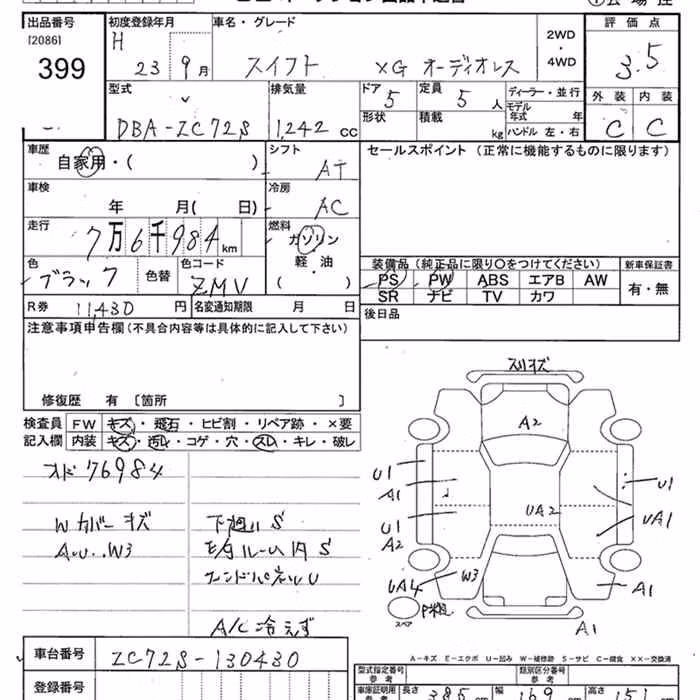 出品番号 初度登録年月 車名・グレード 2WD・4WD 評価点
[2086] H 3.5
399 23 9月 スイフト XG オーディオレス 外装 内装
型式 排気量 ドア 5 定員 5人 ディーラー・並行 C C
DBA-ZC72S 1,242 cc 形状 積載 kg モデル年式 年 ハンドル 左・右
車歴 シフト セールスポイント (正常に機能するものに限ります)
自家用・( ) AT
車検 冷房
年 月( 日) AC
走行 燃料
7万6千984km ガソリン
色 色コード 軽・油 装備品 (純正品に限り○をつけてください) 新車保証書
ブラック 色替 ZMV ( ) PS PW ABS エアB AW 有・無
SR ナビ TV カワ
R券 11,430 円 名変通知期限 月 日 後日品
注意事項申告欄 (不具合内容等は具体的に記入して下さい)
修復歴 有 [箇所 ]
検査員 FW キズ・飛石・ヒビ割・リペア跡・×要
記入欄 内装 キズ・汚れ・コゲ・穴・スレ・キレ・破レ
オド 76984
Wカバーキズ 下廻りS
A.U..W3 ルーム内 S
エンドパネルU
A/C 冷えず
スリキズ
A2
U1 U1
A1
UA2
U1 UA1
A2
UA4 W3 A1
スペア A1
A-キズ E-エクボ U-凹み W-補修跡 S-サビ C-腐食 ××-交換済
車台番号 ZC72S-130430 型式指定番号 参考 類別区分番号 参考
登録番号 車庫証明用 参考 長さ 385 cm 幅 169 cm 高さ 151 cm